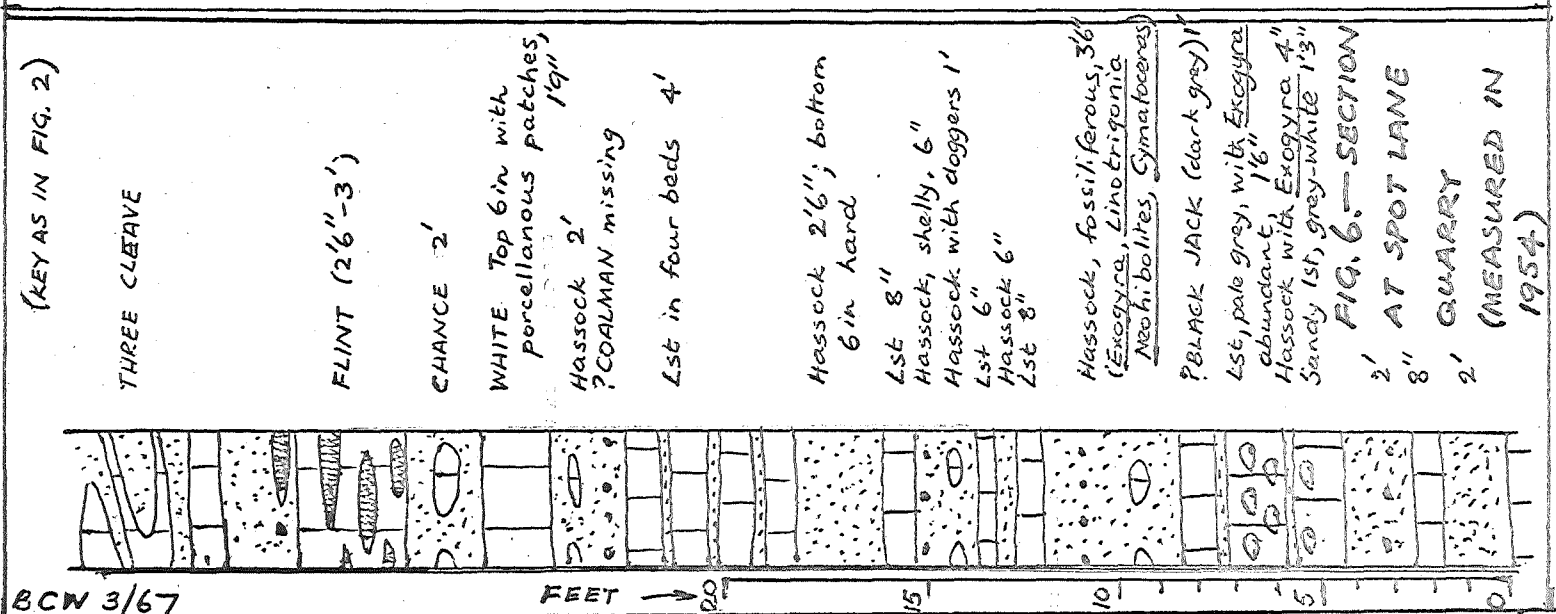 (KEY AS IN FIG. 2)
THREE CLEAVE
FLINT (2'6"-3')
CHANCE 2'
WHITE Top 6 in with
porcellanous patches,
1'9"
Hassock 2'
?COALMAN missing
Lst in four beds 4'
Hassock 2'6"; bottom
6 in hard
Lst 8"
Hassock, shelly, 6"
Hassock with doggers 1'
Lst 6"
Hassock 6"
Lst 8"
Hassock, fossiliferous, 3'6"
(Exogyra, Linotrigonia
Neohibolites, Cymatoceras)
?BLACK JACK (dark grey) 1'
Lst, pale grey, with Exogyra
abundant, 1'6"
Hassock with Exogyra 4"
Sandy lst, grey-white 1'3"
2'
8"
2'
FIG. 6.—SECTION
AT SPOT LANE
QUARRY
(MEASURED IN
1954)
BCW 3/67
FEET → 20
15
10
5
0